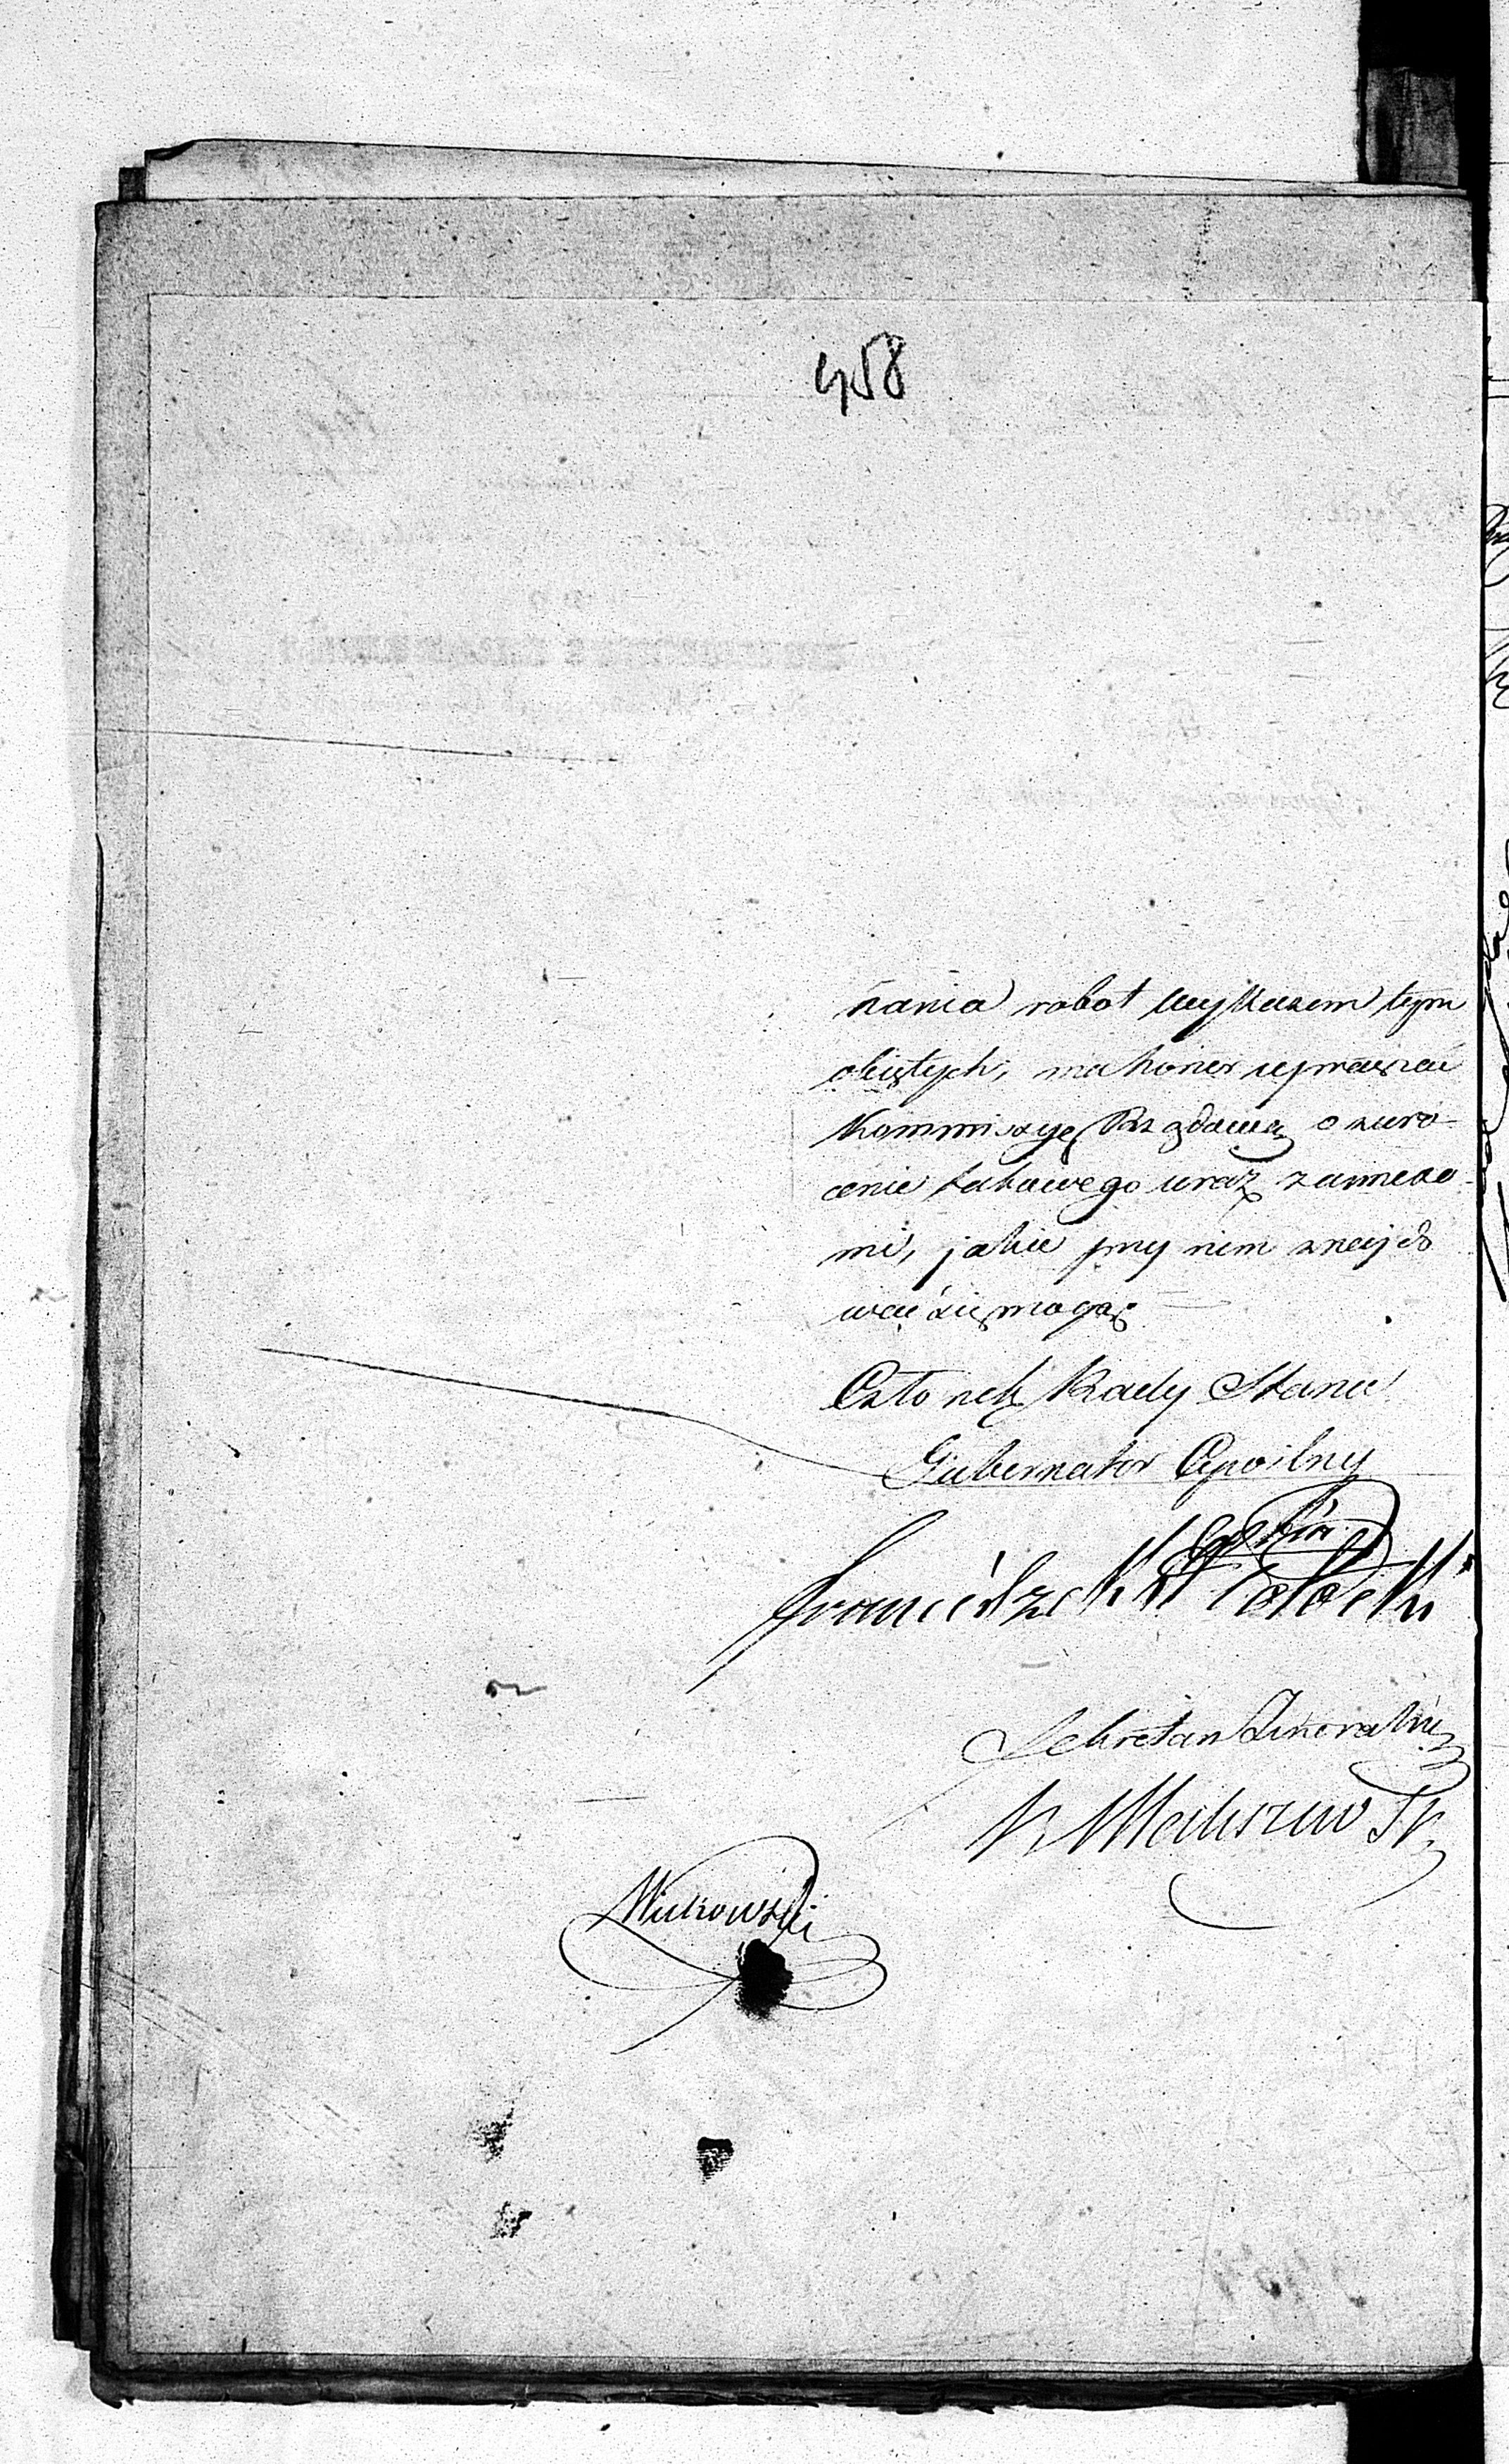 458
nania robot wykazem tym
objętych, ma honor upraszać
Kommissyę Rządową o zwró-
cenie takowego wraz z annexa-
mi, jakie przy nim znajdo
wać się mogą.
Członek Rady Stanu
Gubernator Cywilny
Franciszek Potocki
Sekretarz Jeneralny
Witkowski